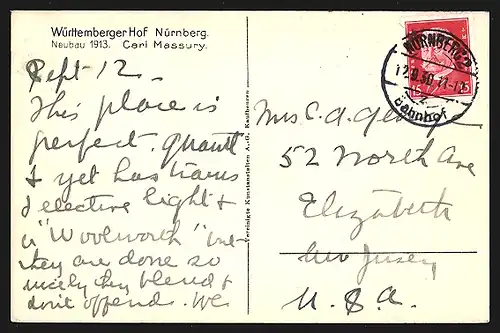 Württemberger Hof Nürnberg.
Neubau 1913. Carl Massury.
Sept 12 -
This place is
perfect. quaint
& yet has trams
& electric light &
a "Woolworth" but
they are done so
nicely they blend &
don't offend. We
Vereinigte Kunstanstalten A.-G. Kaufbeuren
NÜRNBERG 2
12.9.30.
Bahnhof
15 15
Mrs C. A.
52 North Ave
Elizabeth
New Jersey
U. S. A.